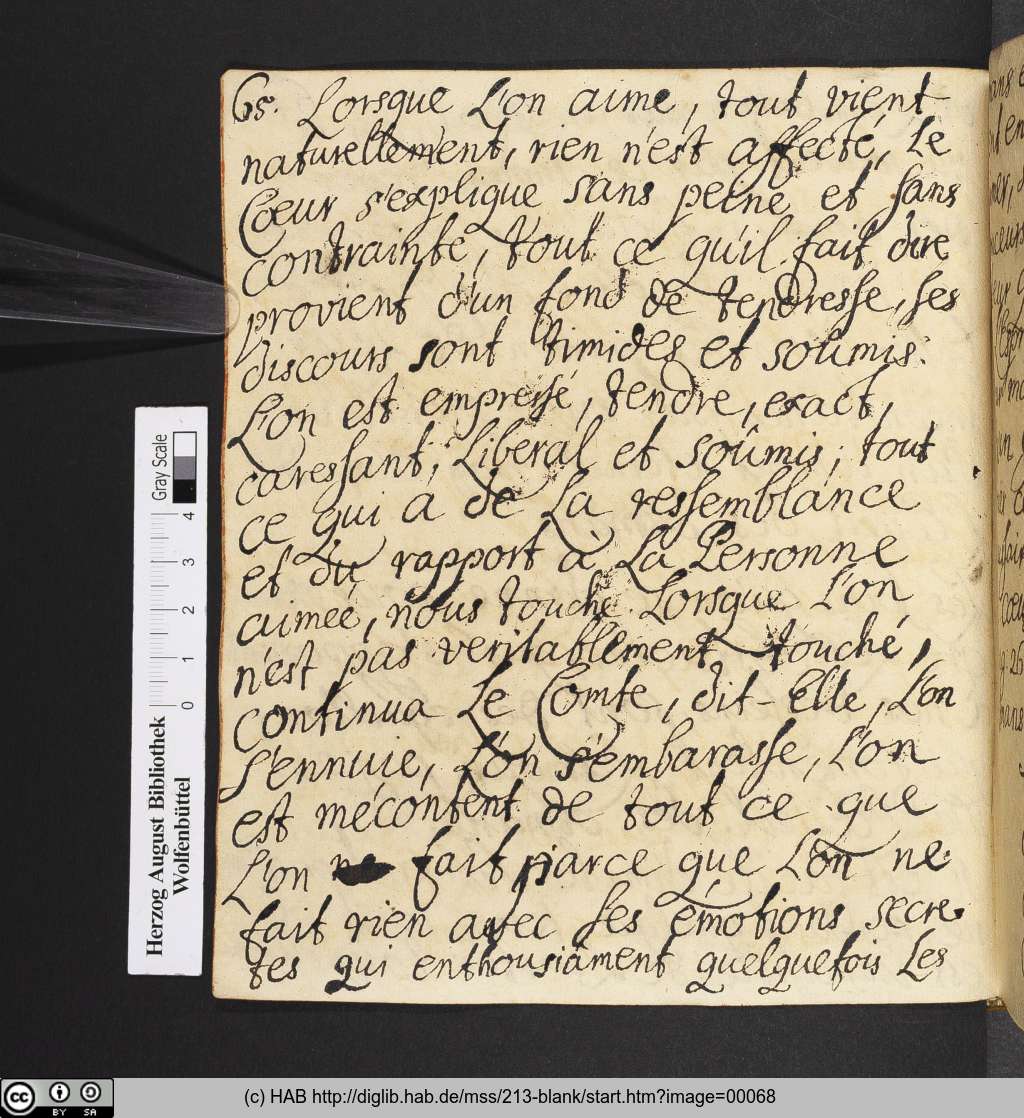 65. Lorsque L'on aime, tout vient
naturellement, rien n'est affecté, Le
Cœur s'explique sans peine et sans
contrainte, tout ce qu'il fait dire
provient d'un fond de tendresse, ses
discours sont timides et soûmis:
L'on est empressé, tendre, exact,
caressant, Liberal et soûmis; tout
ce qui a de La ressemblance
et du rapport à La Personne
aimeé, nous touche. Lorsque L'on
n'est pas veritablement touché,
continua Le Comte, dit-Elle, L'on
s'ennuie, L'on s'embarasse, L'on
est mécontent de tout ce que
L'on fait parce que L'on ne
fait rien avec ses émotions secre-
tes qui enthousiament quelquefois Les
Herzog August Bibliothek
Wolfenbüttel
Gray Scale
0 1 2 3 4
(c) HAB http://diglib.hab.de/mss/213-blank/start.htm?image=00068
cc BY SA